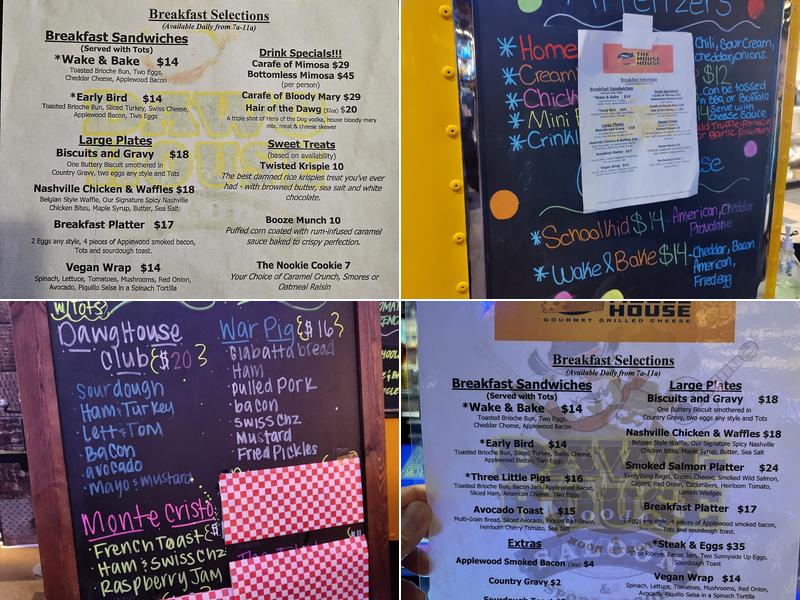 Breakfast Selections
(Available Daily from 7a-11a)
Breakfast Sandwiches
(Served with Tots)
*Wake & Bake $14
Toasted Brioche Bun, Two Eggs,
Cheddar Cheese, Applewood Bacon
*Early Bird $14
Toasted Brioche Bun, Sliced Turkey, Swiss Cheese,
Applewood Bacon, Two Eggs
Large Plates
Biscuits and Gravy $18
One Buttery Biscuit smothered in
Country Gravy, two eggs any style and Tots
Nashville Chicken & Waffles $18
Belgian Style Waffle, Our Signature Spicy Nashville
Chicken Bites, Maple Syrup, Butter, Sea Salt
Breakfast Platter $17
2 Eggs any style, 4 pieces of Applewood smoked bacon,
Tots and sourdough toast.
Vegan Wrap $14
Spinach, Lettuce, Tomatoes, Mushrooms, Red Onion,
Avocado, Piquillo Salsa in a Spinach Tortilla
Drink Specials!!!
Carafe of Mimosa $29
Bottomless Mimosa $45
(per person)
Carafe of Bloody Mary $29
Hair of the Dawg (32oz) $20
A triple shot of Hera of the Dog vodka, house bloody mary
mix, meat & cheese skewer
Sweet Treats
(based on availability)
Twisted Krispie 10
The best damned rice krispies treat you've ever
had - with browned butter, sea salt and white
chocolate.
Booze Munch 10
Puffed corn coated with rum-infused caramel
sauce baked to crispy perfection.
The Nookie Cookie 7
Your Choice of Caramel Crunch, Smores or
Oatmeal Raisin
Appetizers
*Home
*Cream
*Chick
*Mini
*Crinkl
Chili, Sour Cream,
cheddar, onions.
$12
can be tossed
in BBQ or Buffalo
Serve with
Cheese Sauce
Add Truffle
or garlic
THE
MOUSE
HOUSE
Breakfast Selections
Breakfast Sandwiches
Drink Specials!!!
Large Plates
Sweet Treats
*Schoolkid $14 - American, Cheddar
Provolone
*Wake & Bake $14 - Cheddar, Bacon
American,
Fried egg
w/(Tots)
DawgHouse
Club {$20}
Sourdough
Ham & Turkey
Lett & Tom
Bacon
avocado
Mayo & mustard
Monte Cristo
French Toast
Ham & Swiss chz
Raspberry Jam
War Pig {$16}
Ciabatta bread
Ham
pulled pork
bacon
swiss chz
Mustard
Fried Pickles
HOUSE
GOURMET GRILLED CHEESE
Breakfast Selections
(Available Daily from 7a-11a)
Breakfast Sandwiches
(Served with Tots)
*Wake & Bake $14
Toasted Brioche Bun, Two Eggs,
Cheddar Cheese, Applewood Bacon
*Early Bird $14
Toasted Brioche Bun, Sliced Turkey, Swiss Cheese,
Applewood Bacon, Two Eggs
*Three Little Pigs $16
Toasted Brioche Bun, Bacon Jam, Applewood Bacon,
Sliced Ham, American Cheese, Two Eggs
Avocado Toast $15
Multi-Grain Bread, Sliced Avocado, Pickled Red Onion,
Heirloom Cherry Tomato, Sea Salt
Extras
Applewood Smoked Bacon (3ea) $4
Country Gravy $2
Large Plates
Biscuits and Gravy $18
One Buttery Biscuit smothered in
Country Gravy, two eggs any style and Tots
Nashville Chicken & Waffles $18
Belgian Style Waffle, Our Signature Spicy Nashville
Chicken Bites, Maple Syrup, Butter, Sea Salt
Smoked Salmon Platter $24
Everything Bagel, Cream Cheese, Smoked Wild Salmon,
Capers, Red Onion, Cucumbers, Heirloom Tomato,
Lemon Wedges
Breakfast Platter $17
2 Eggs any style, 4 pieces of Applewood smoked bacon,
Tots and sourdough toast.
*Steak & Eggs $35
of Ribeye, Bacon Jam, Two Sunnyside Up Eggs,
Sourdough Toast
Vegan Wrap $14
Spinach, Lettuce, Tomatoes, Mushrooms, Red Onion,
Avocado, Piquillo Salsa in a Spinach Tortilla